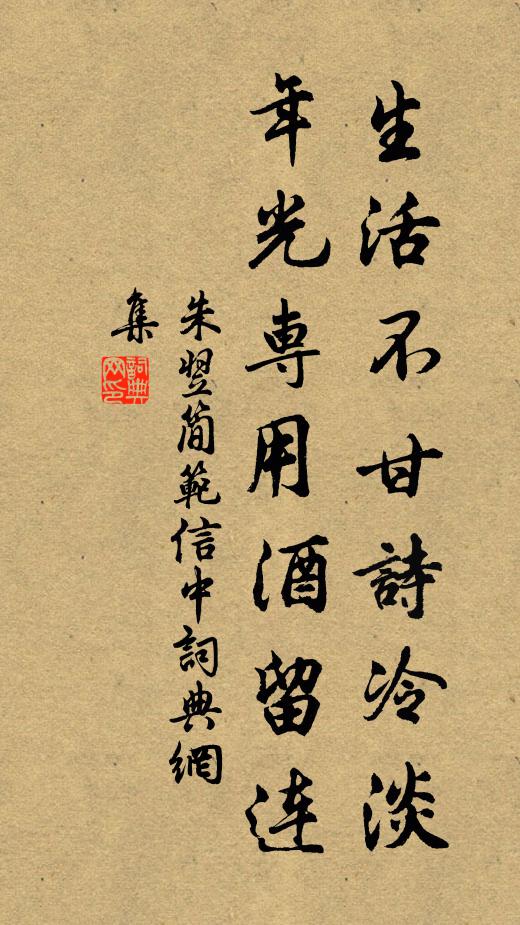 生活不甘詩冷淡
年光専用酒留連
朱翌簡範信中詞典網
集
詞典網印